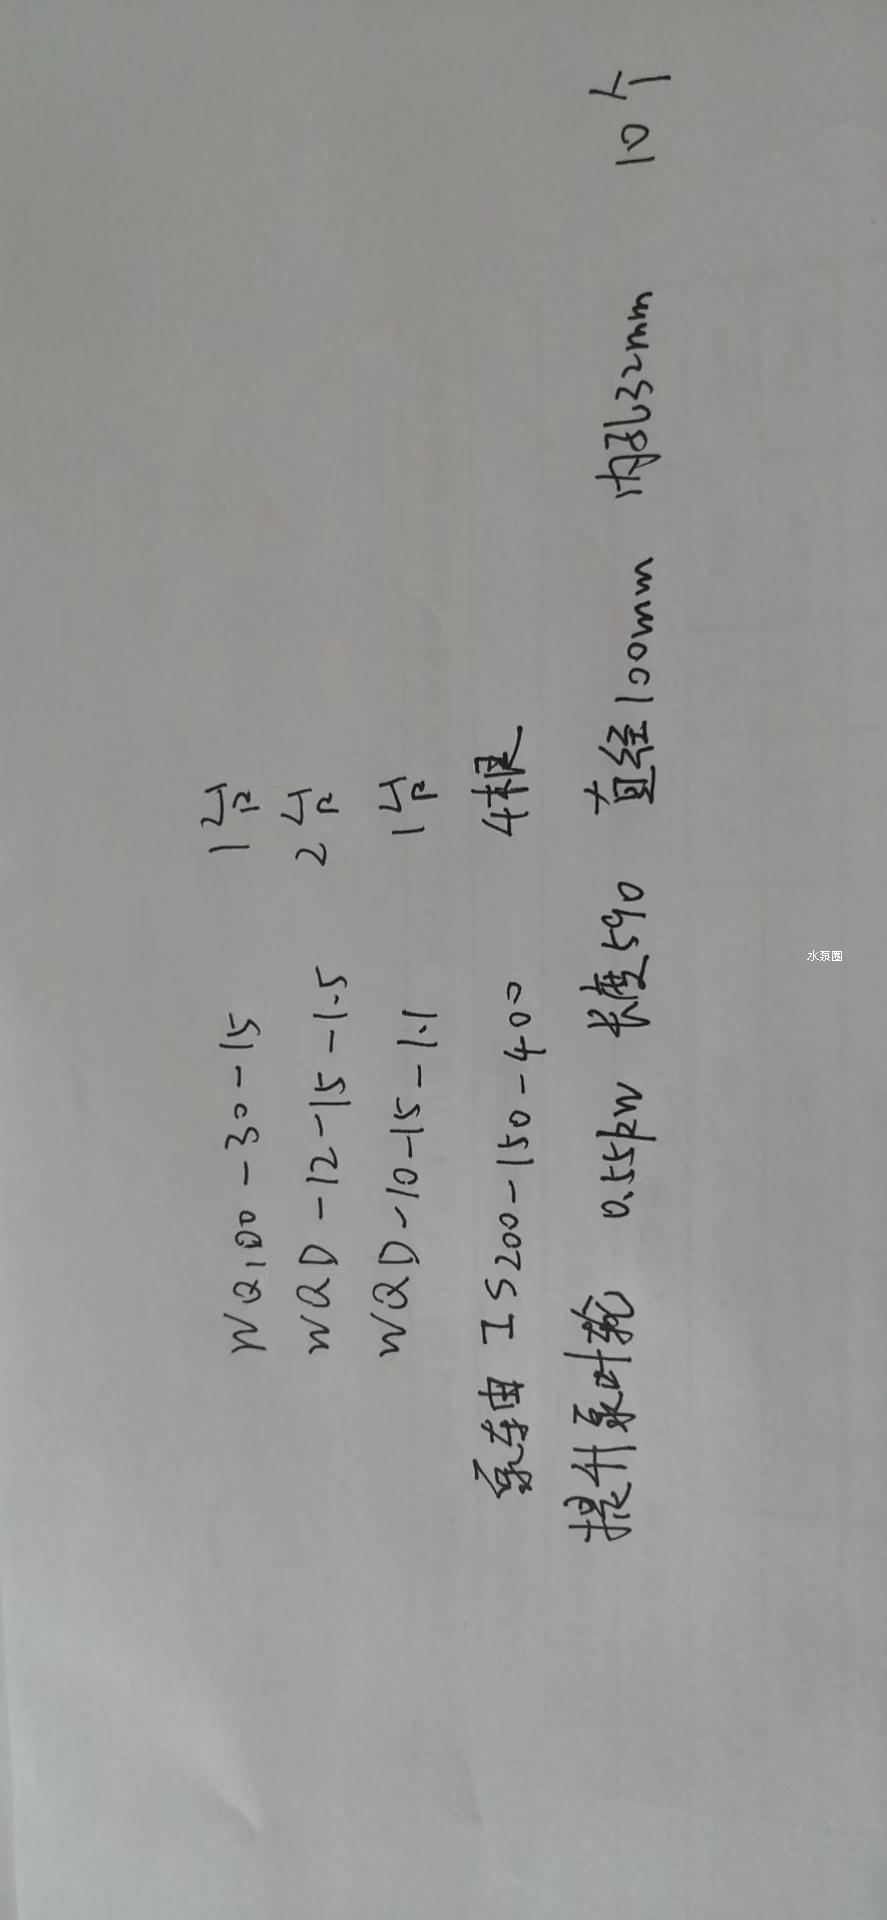 WQ100-30-15 1台
WQD-12-15-1.5 2台
WQD-10-15-1.1 1台
泵轴 IS200-150-400 4根
提升泵叶轮 0.55kw 长度590 直径100mm 内孔32mm 10个
水泵圈